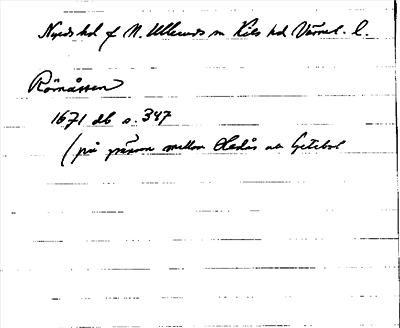 Nyeds hd f N. Ullerud s m Kils hd Värml. l.
Rörnåssen
1671 db s. 347
(på gränsen mellan Hedås och Götebol